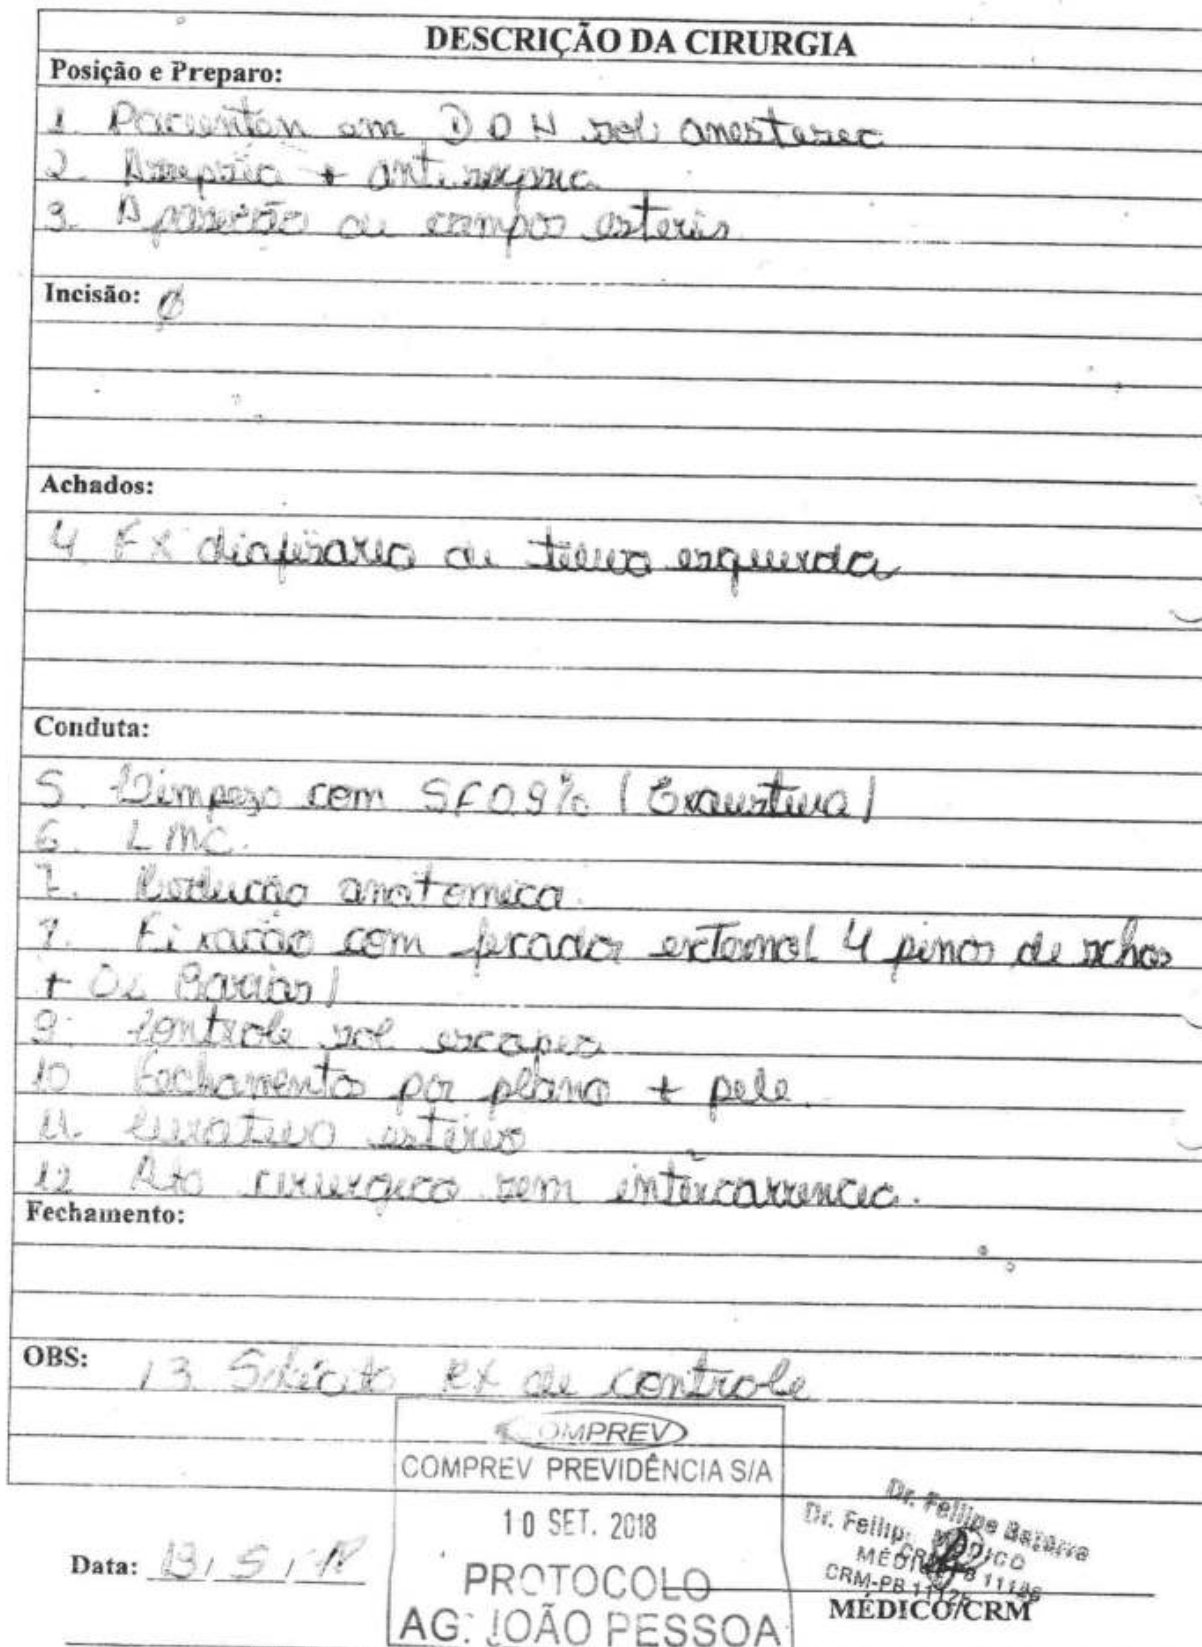 DESCRIÇÃO DA CIRURGIA
Posição e Preparo:
1. Paciente em DDH sob anestesia
2. Assepsia + antissepsia
3. Aposição de campos estéreis
Incisão: Ø
Achados:
4 FX diafisária de tíbia esquerda
Conduta:
5. Limpeza com SF0.9% (Exaustiva)
6. LMC.
7. Redução anatomica.
Fixação com fixador externo( 4 pinos de
+ 02 Barras)
9. Controle sob escopia
10 Fechamento por plano + pele.
11. Curativo estéril
12 Ato cirurgico sem intercorrencia.
Fechamento:
OBS: 13 Solicito RX de controle
COMPREV
COMPREV PREVIDÊNCIA S/A
10 SET. 2018
PROTOCOLO
AG. JOÃO PESSOA
Data: 13/5/18
Dr. Fellipe
MÉDICO
CRM-PB
MÉDICO/CRM